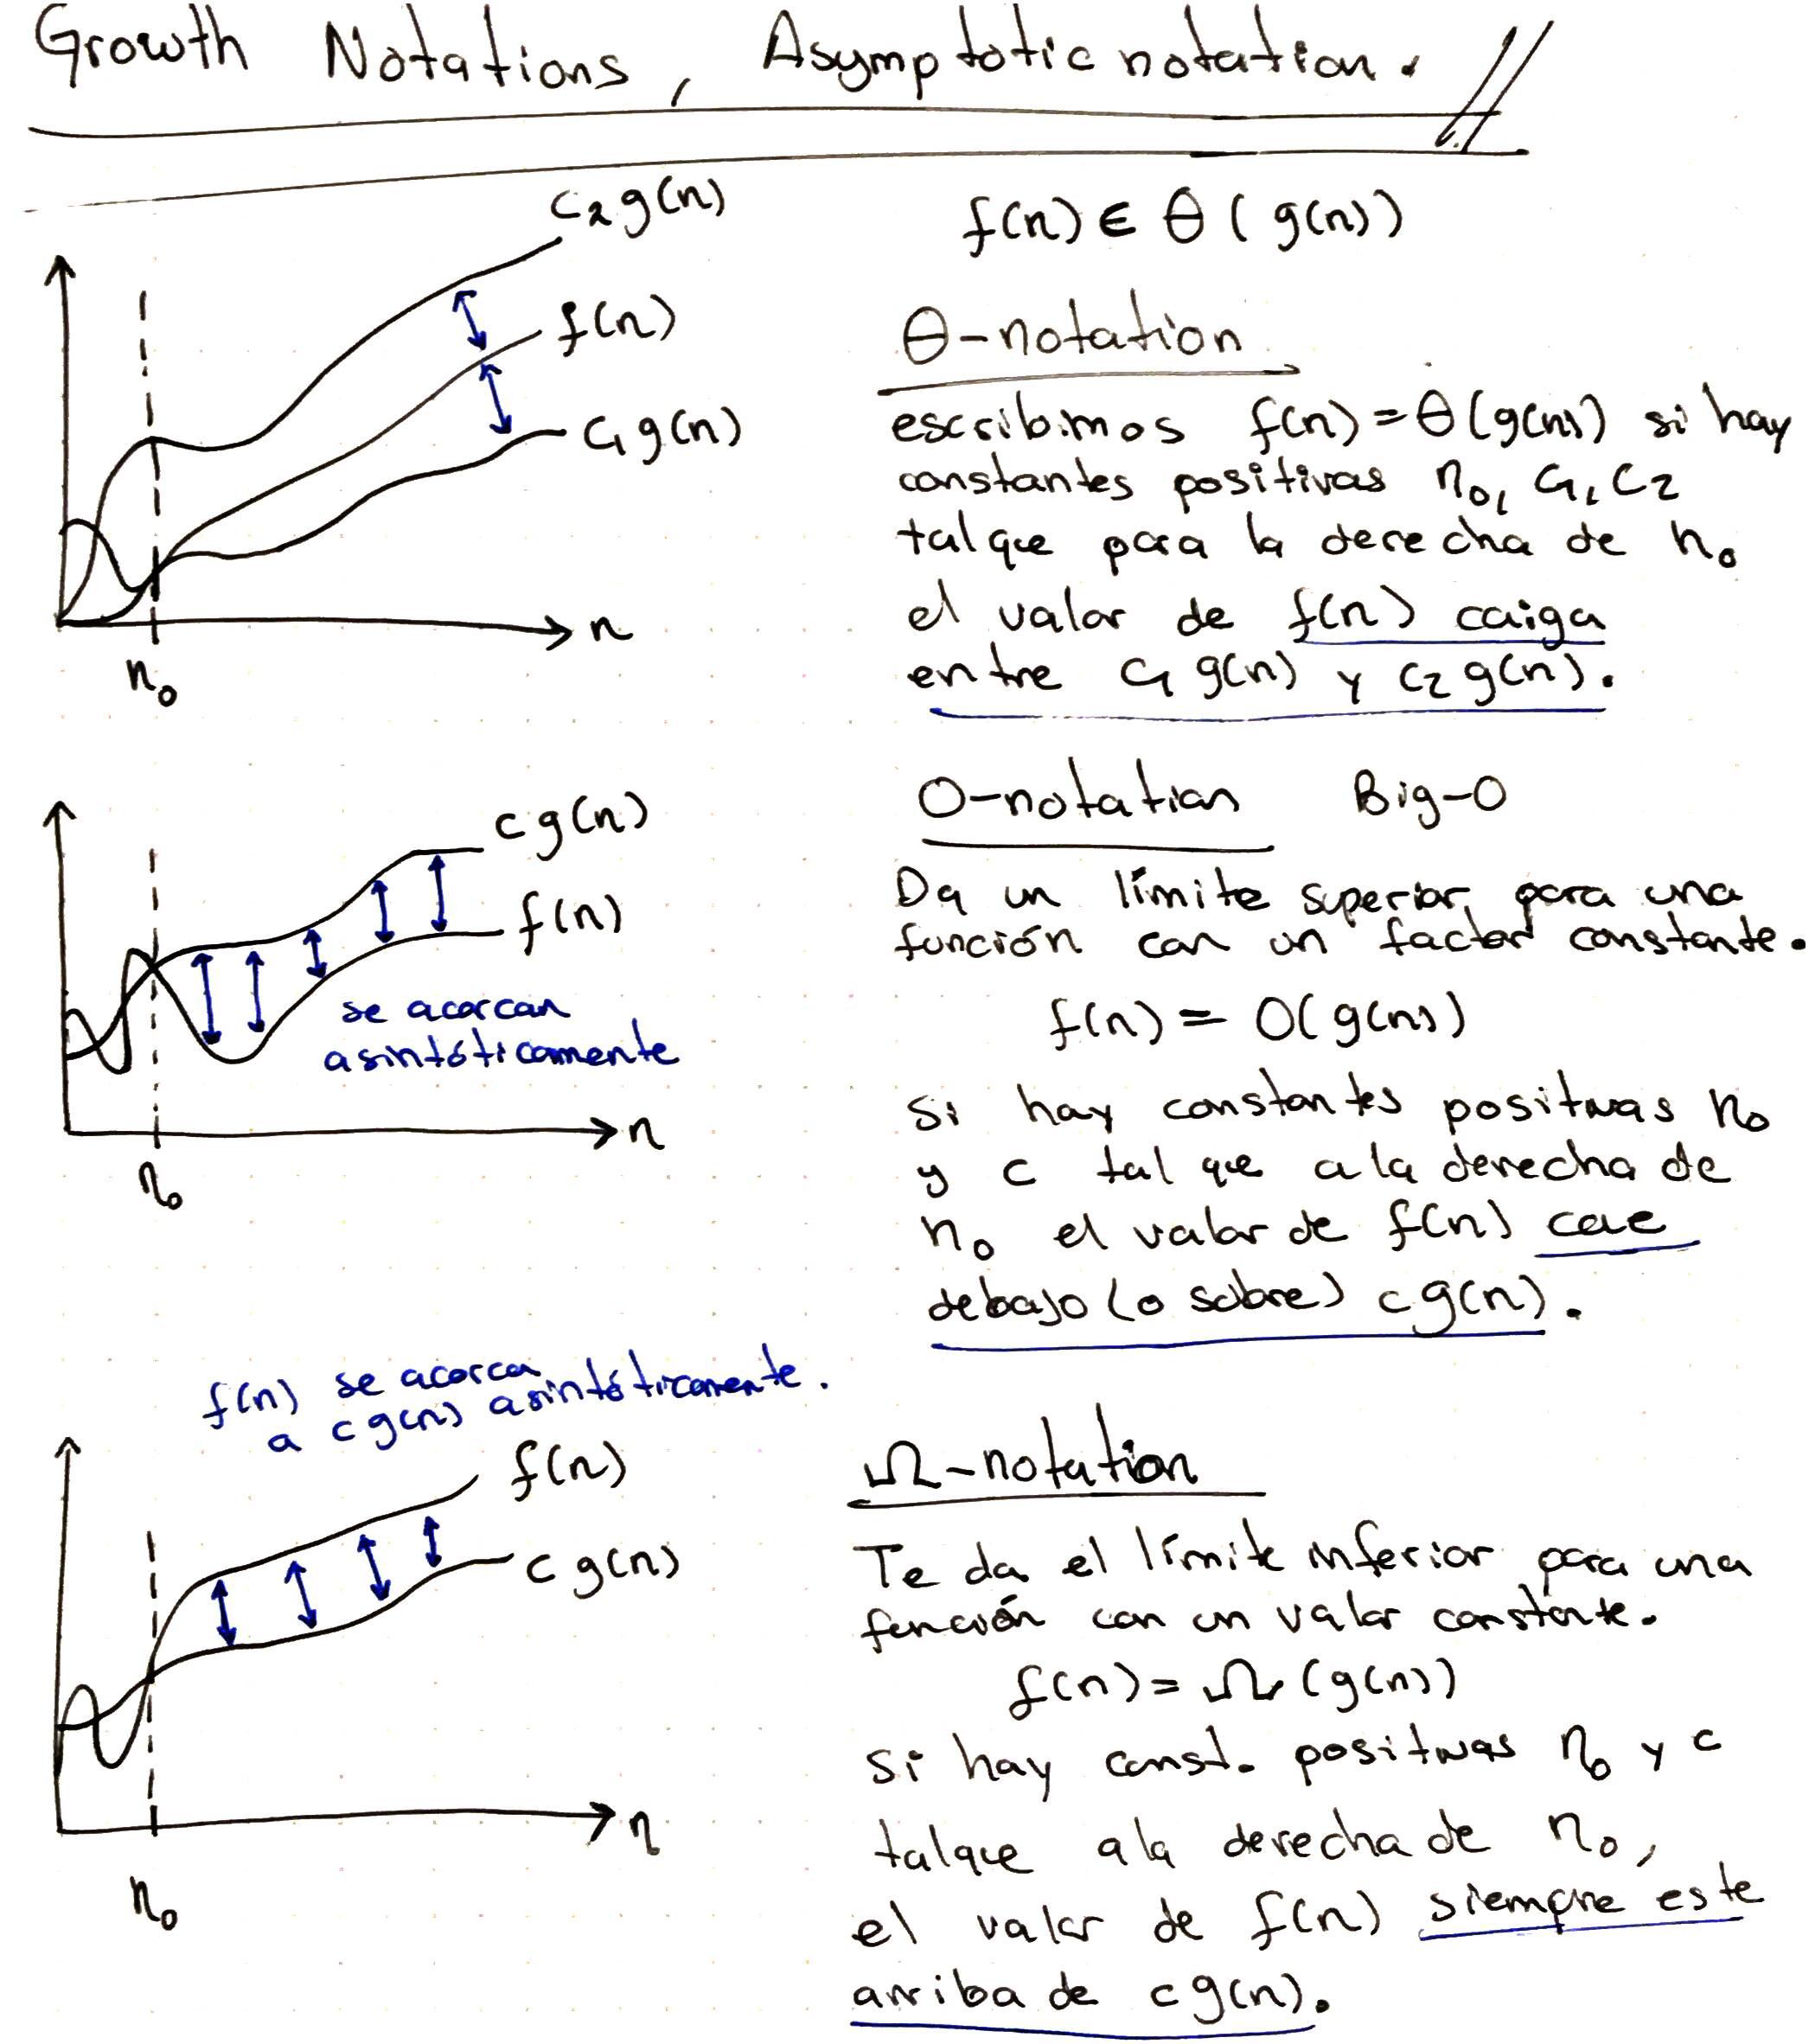 Growth Notations, Asymptotic notation.
c2 g(n)
f(n)
c1 g(n)
n
n0
f(n) ∈ θ(g(n))
θ-notation
escribimos f(n) = θ(g(n)) si hay
constantes positivas n0, c1, c2
tal que para la derecha de n0
el valor de f(n) caiga
entre c1 g(n) y c2 g(n).
c g(n)
f(n)
se acercan
asintóticamente
n
n0
O-notation Big-O
Da un límite superior para una
función con un factor constante.
f(n) = O(g(n))
Si hay constantes positivas n0
y c tal que a la derecha de
n0 el valor de f(n) cae
debajo (o sobre) c g(n).
f(n) se acerca
a c g(n) asintóticamente.
f(n)
c g(n)
n
n0
Ω-notation
Te da el límite inferior para una
función con un valor constante.
f(n) = Ω(g(n))
Si hay const. positivas n0 y c
tal que a la derecha de n0,
el valor de f(n) siempre este
arriba de c g(n).